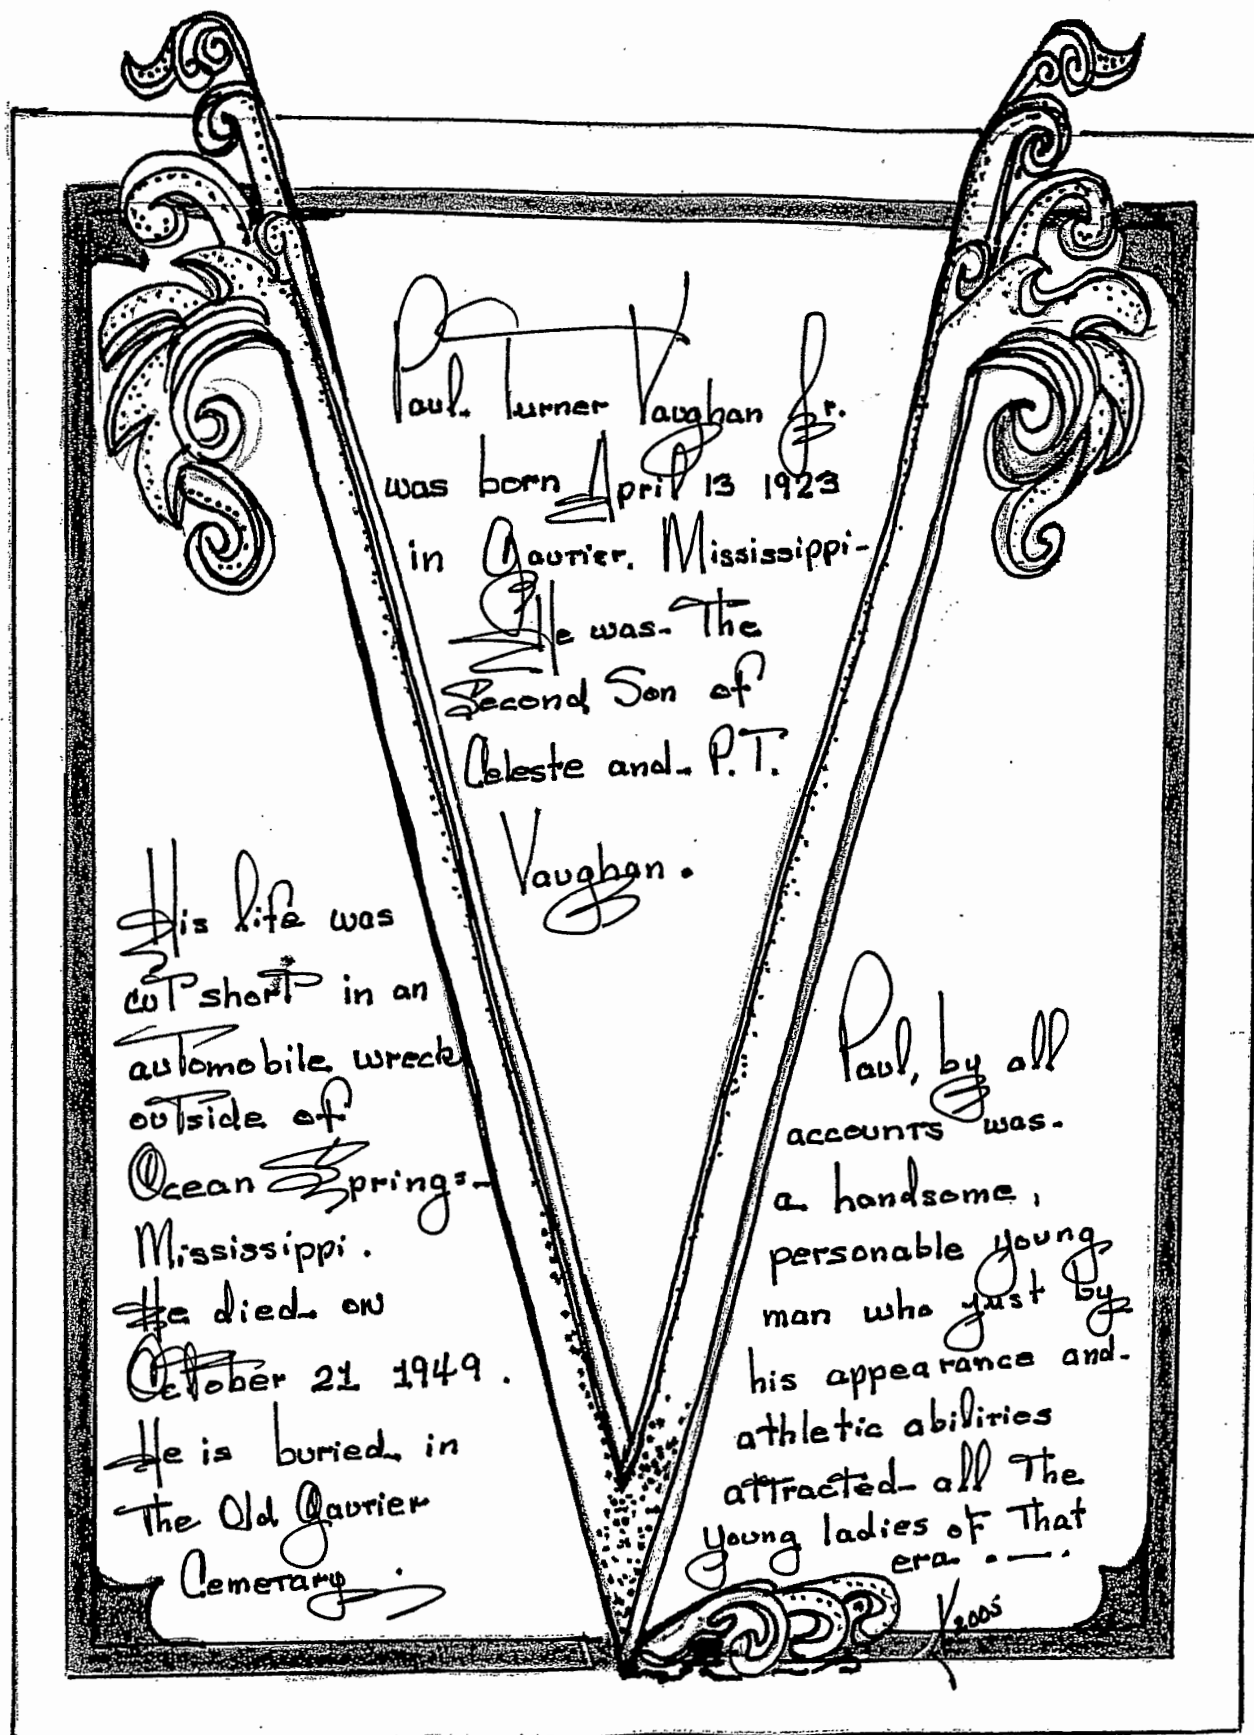 Paul Turner Vaughan Jr.
was born April 13 1923
in Gautier. Mississippi-
He was The
Second Son of
Celeste and P.T.
Vaughan.
His life was
cut short in an
automobile wreck
outside of
Ocean Springs-
Mississippi.
He died on
October 21 1949.
He is buried in
The Old Gautier
Cemetary.
Paul, by all
accounts was
a handsome,
personable young
man who just by
his appearance and
athletic abilities
attracted all The
young ladies of That
era.
2005